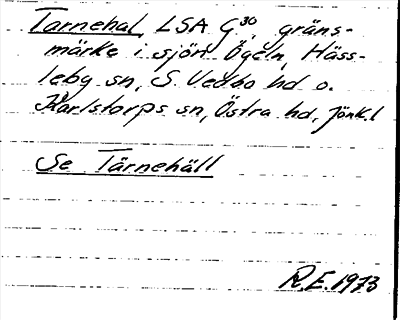 Tarnehal, LSA G³⁰, gräns-
märke i sjön Ögeln, Häss-
leby sn, S. Vedbo hd o.
Karlstorps sn, Östra hd, Jönk.l
Se Tärnehäll
R.E. 1973